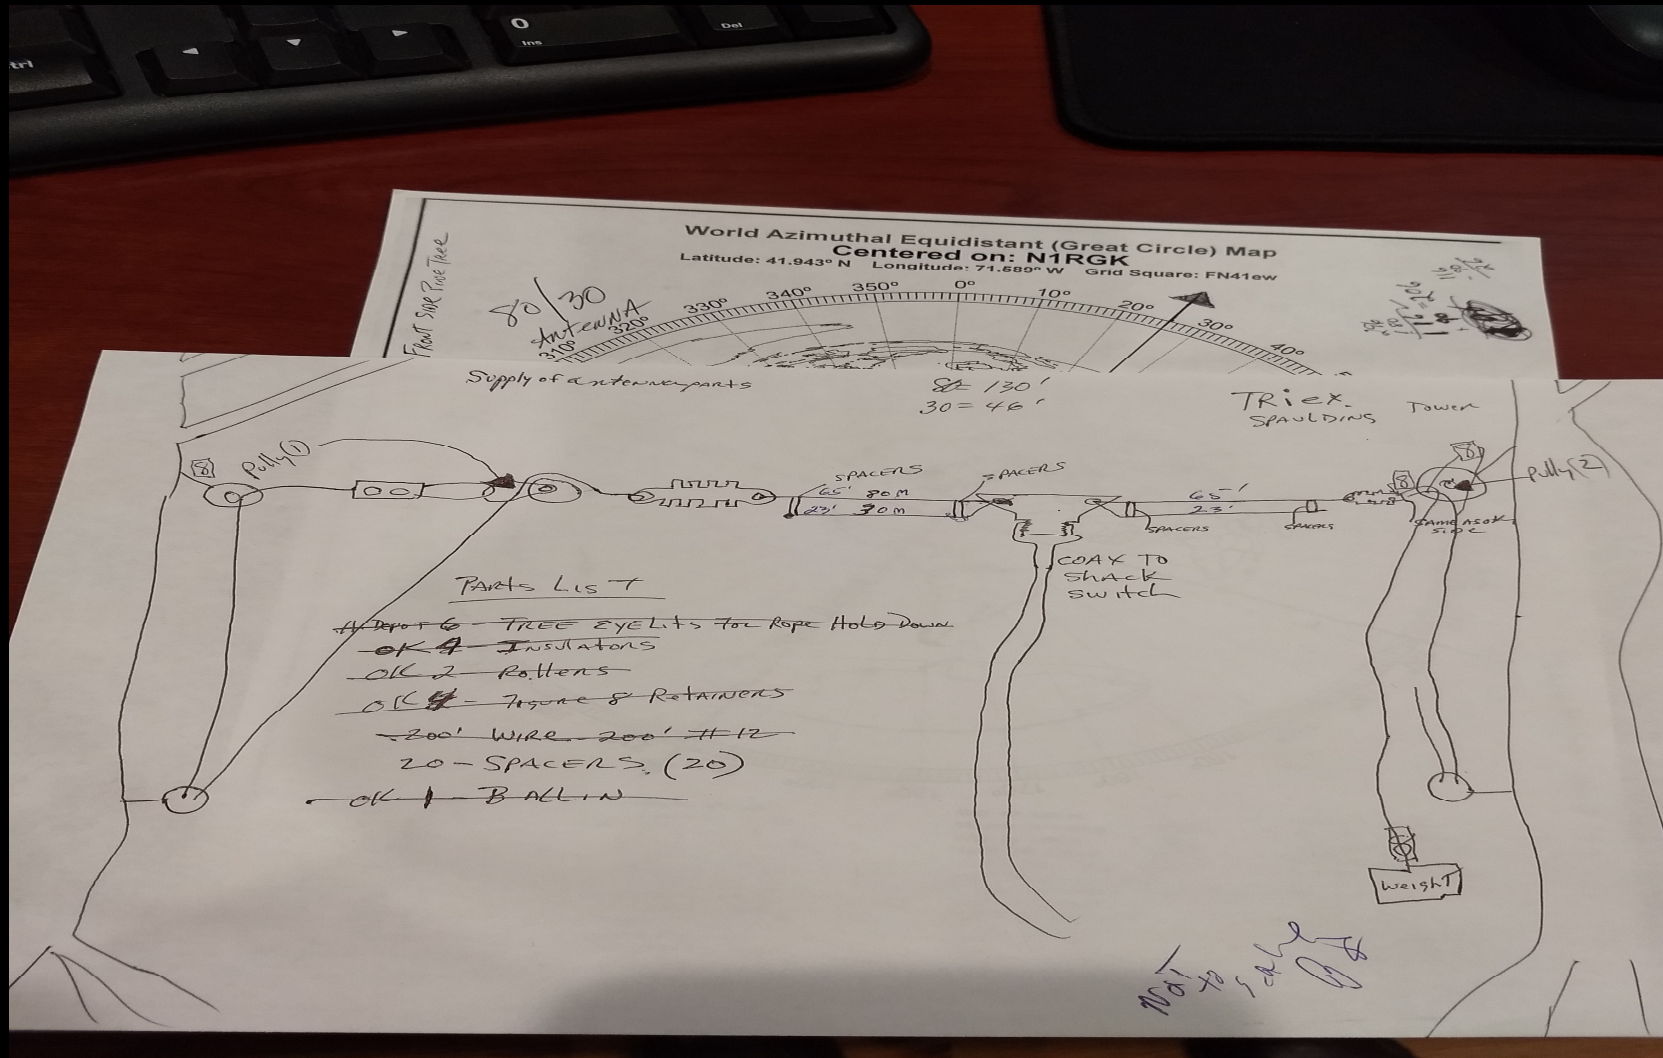 0
Ins
Del
trl
World Azimuthal Equidistant (Great Circle) Map
Centered on: N1RGK
Latitude: 41.943° N Longitude: 71.589° W Grid Square: FN41ew
FRONT SIDE PINE TREE
80/30
ANTENNA
310° 320° 330° 340° 350° 0° 10° 20° 30° 40°
Supply of antenna parts
80= 130'
30 = 46'
TRiex.
SPAULDING
TOWER
8
Pully(1)
SPACERS
SPACERS
65' 80 M
23' 30 M
65'
23'
SPACERS
SPACERS
8
8
pully(2)
COAX TO
SHACK
SWITCH
PARTS LIST
H/Depot 6 - TREE EYELITS FOR ROPE HOLD DOWN
OK 4 INSULATORS
OK 2 Rollers
OK 4 - Figure 8 RETAINERS
200' WIRE 200' #12
20 - SPACERS. (20)
OK 1 BALLIN
weighT
NOT
to